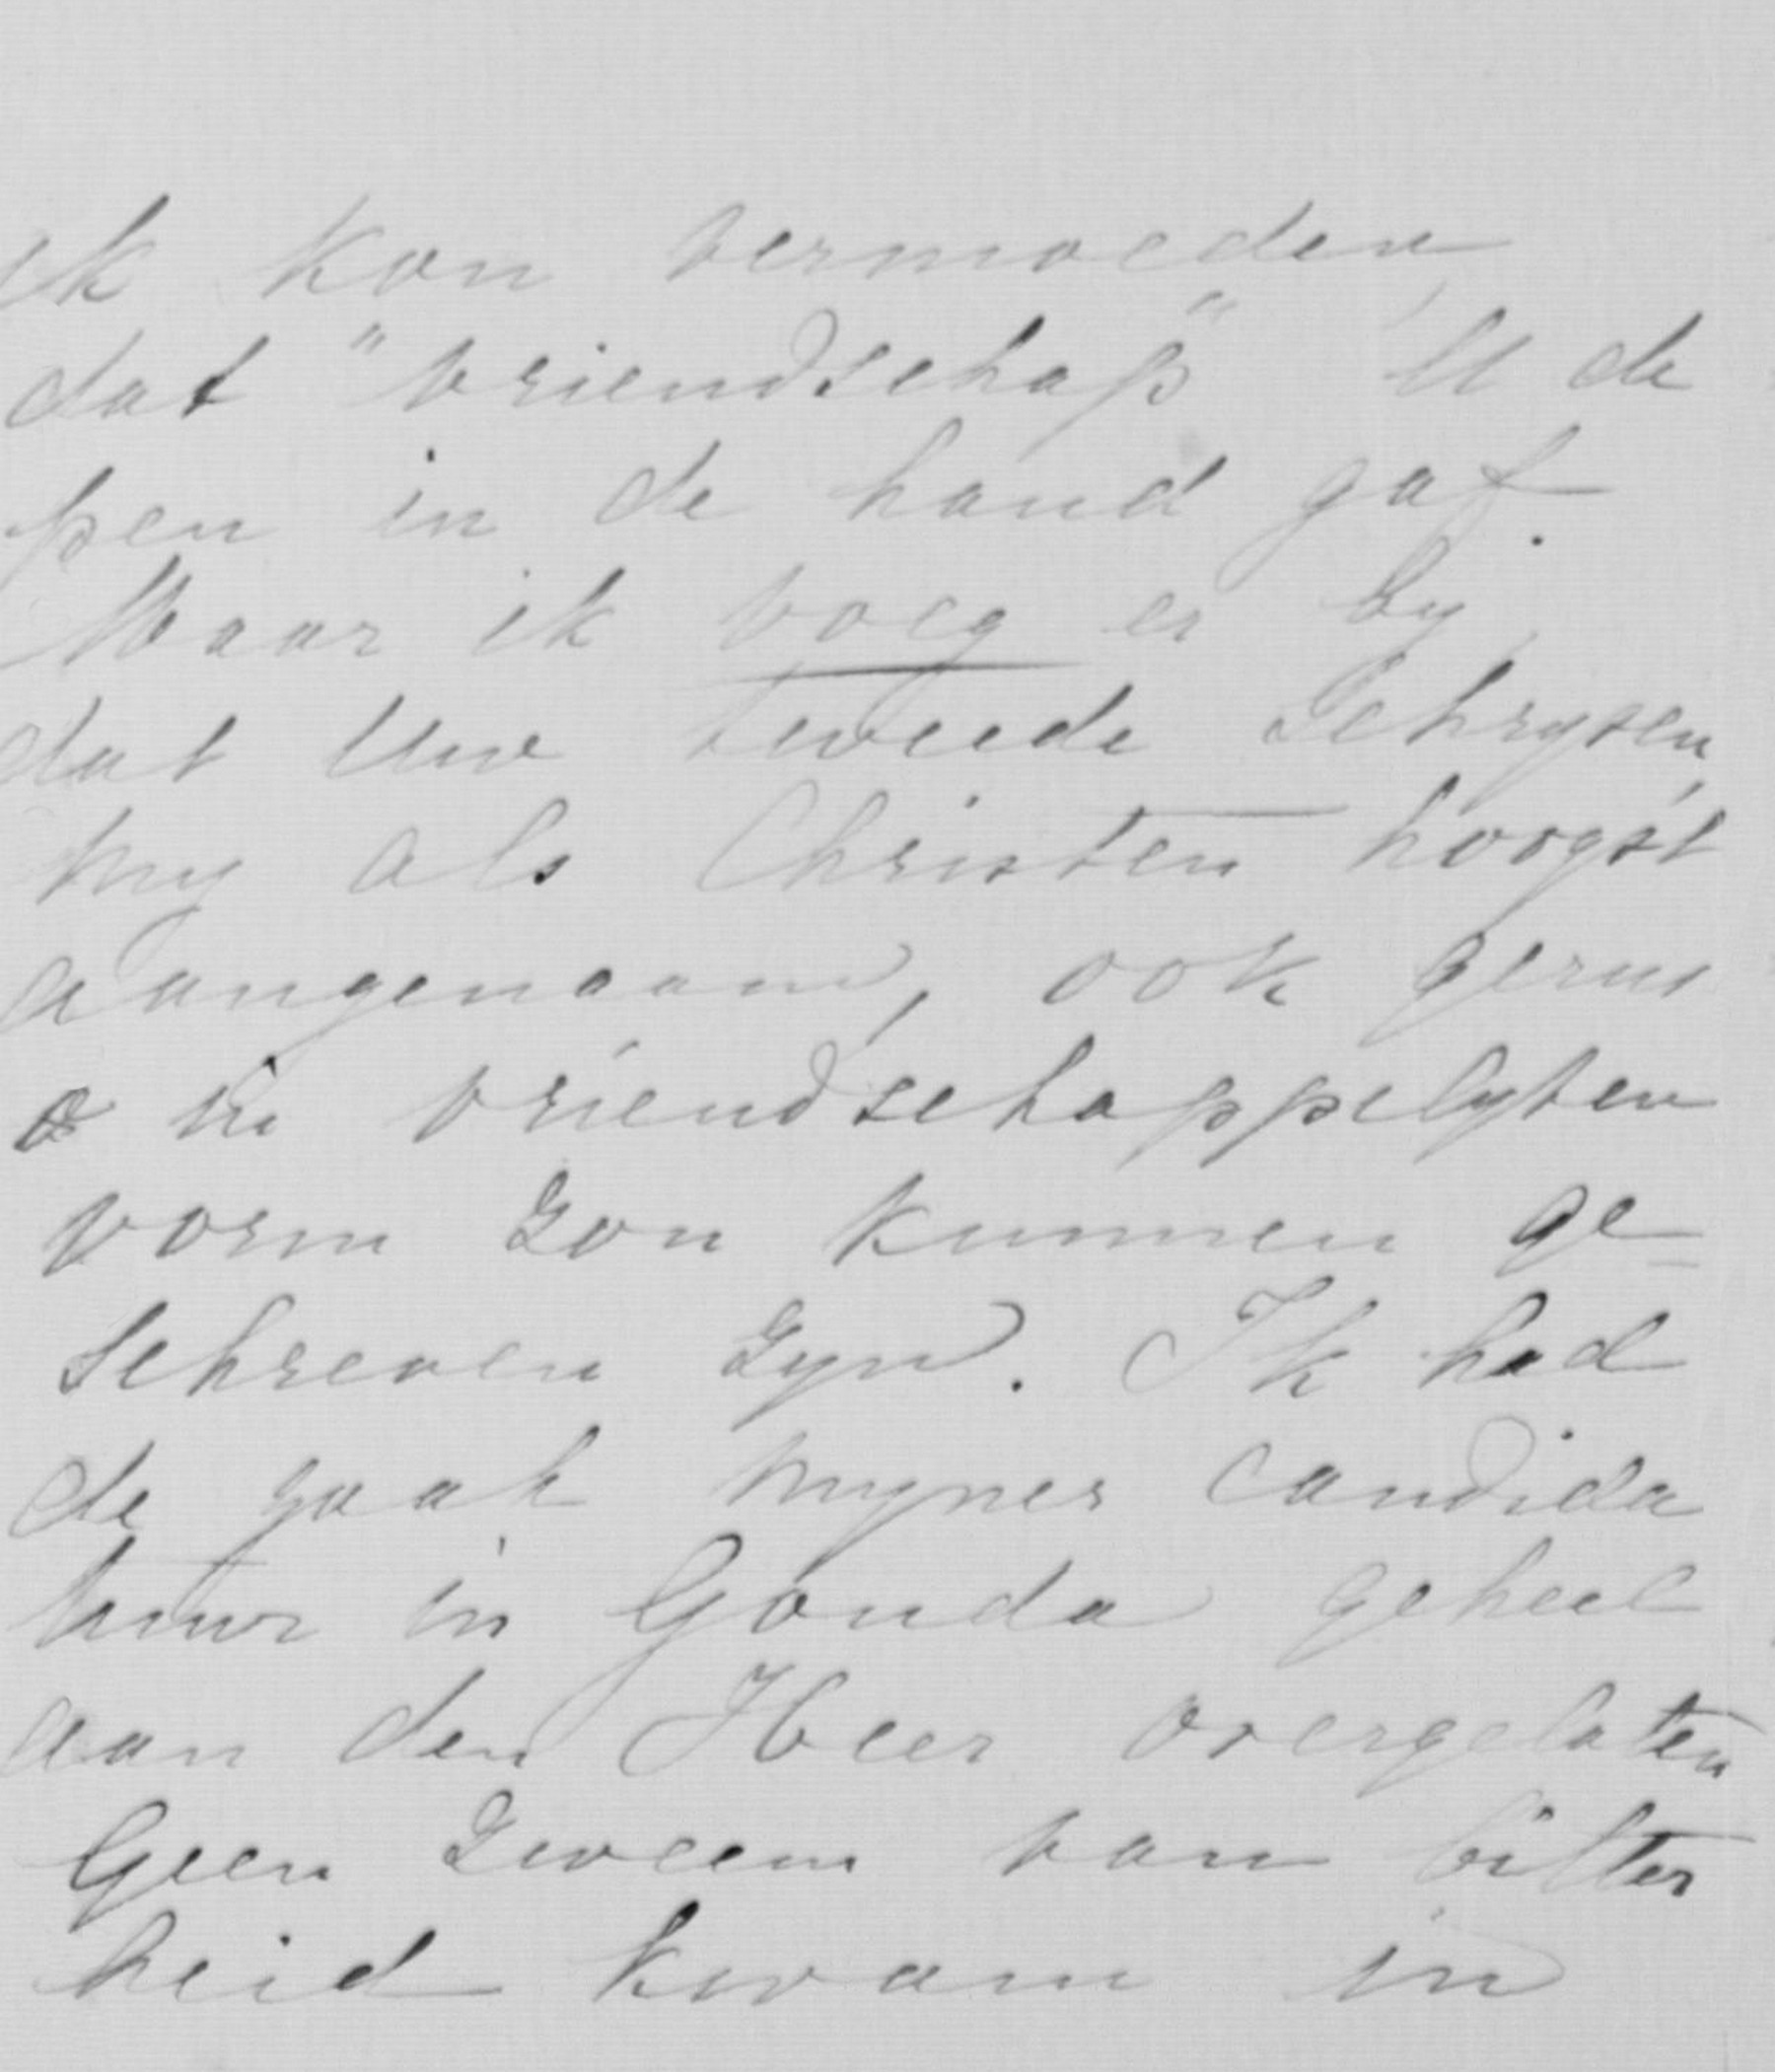 ik kon vermoeden
dat "vriendschap" U de
pen in de hand gaf.
Maar ik voeg er by
dat Uw tweede Schryven
my als Christen hoogst
aangenaam, ook gerus
in vriendschappelyken
vorm zou kunnen ge-
schreven zyn. Ik had
de zaak myner candida
tuur in Gouda geheel
aan den Heer overgelaten
Geen zweem van bitter
heid kwam in